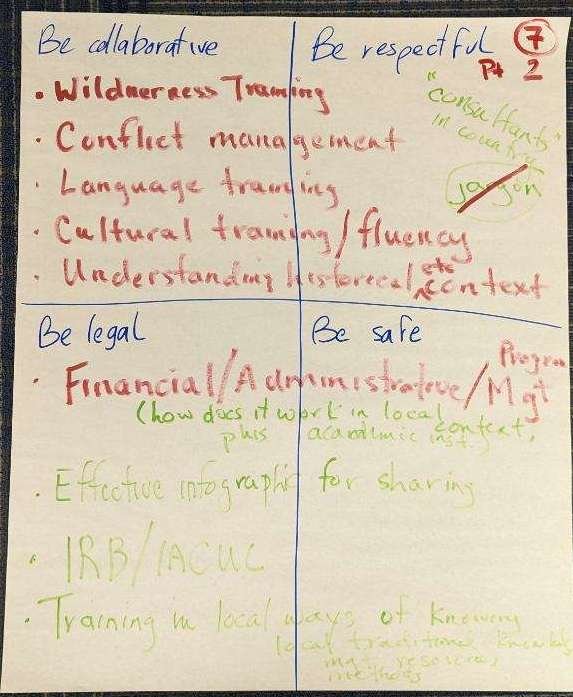 Be collaborative
Be respectful
7
Pt 2
"consultants"
in country
jargon
• Wildnerness Training
• Conflict management
• Language training
• Cultural training/fluency
• Understanding historical, etc context
Be legal
Be safe
• Financial/Administrative/Program Mgt
(how does it work in local context,
plus academic inst.)
• Effective infographic for sharing
• IRB/IACUC
• Training in local ways of knowing
local traditional
mgt, resources,
methods